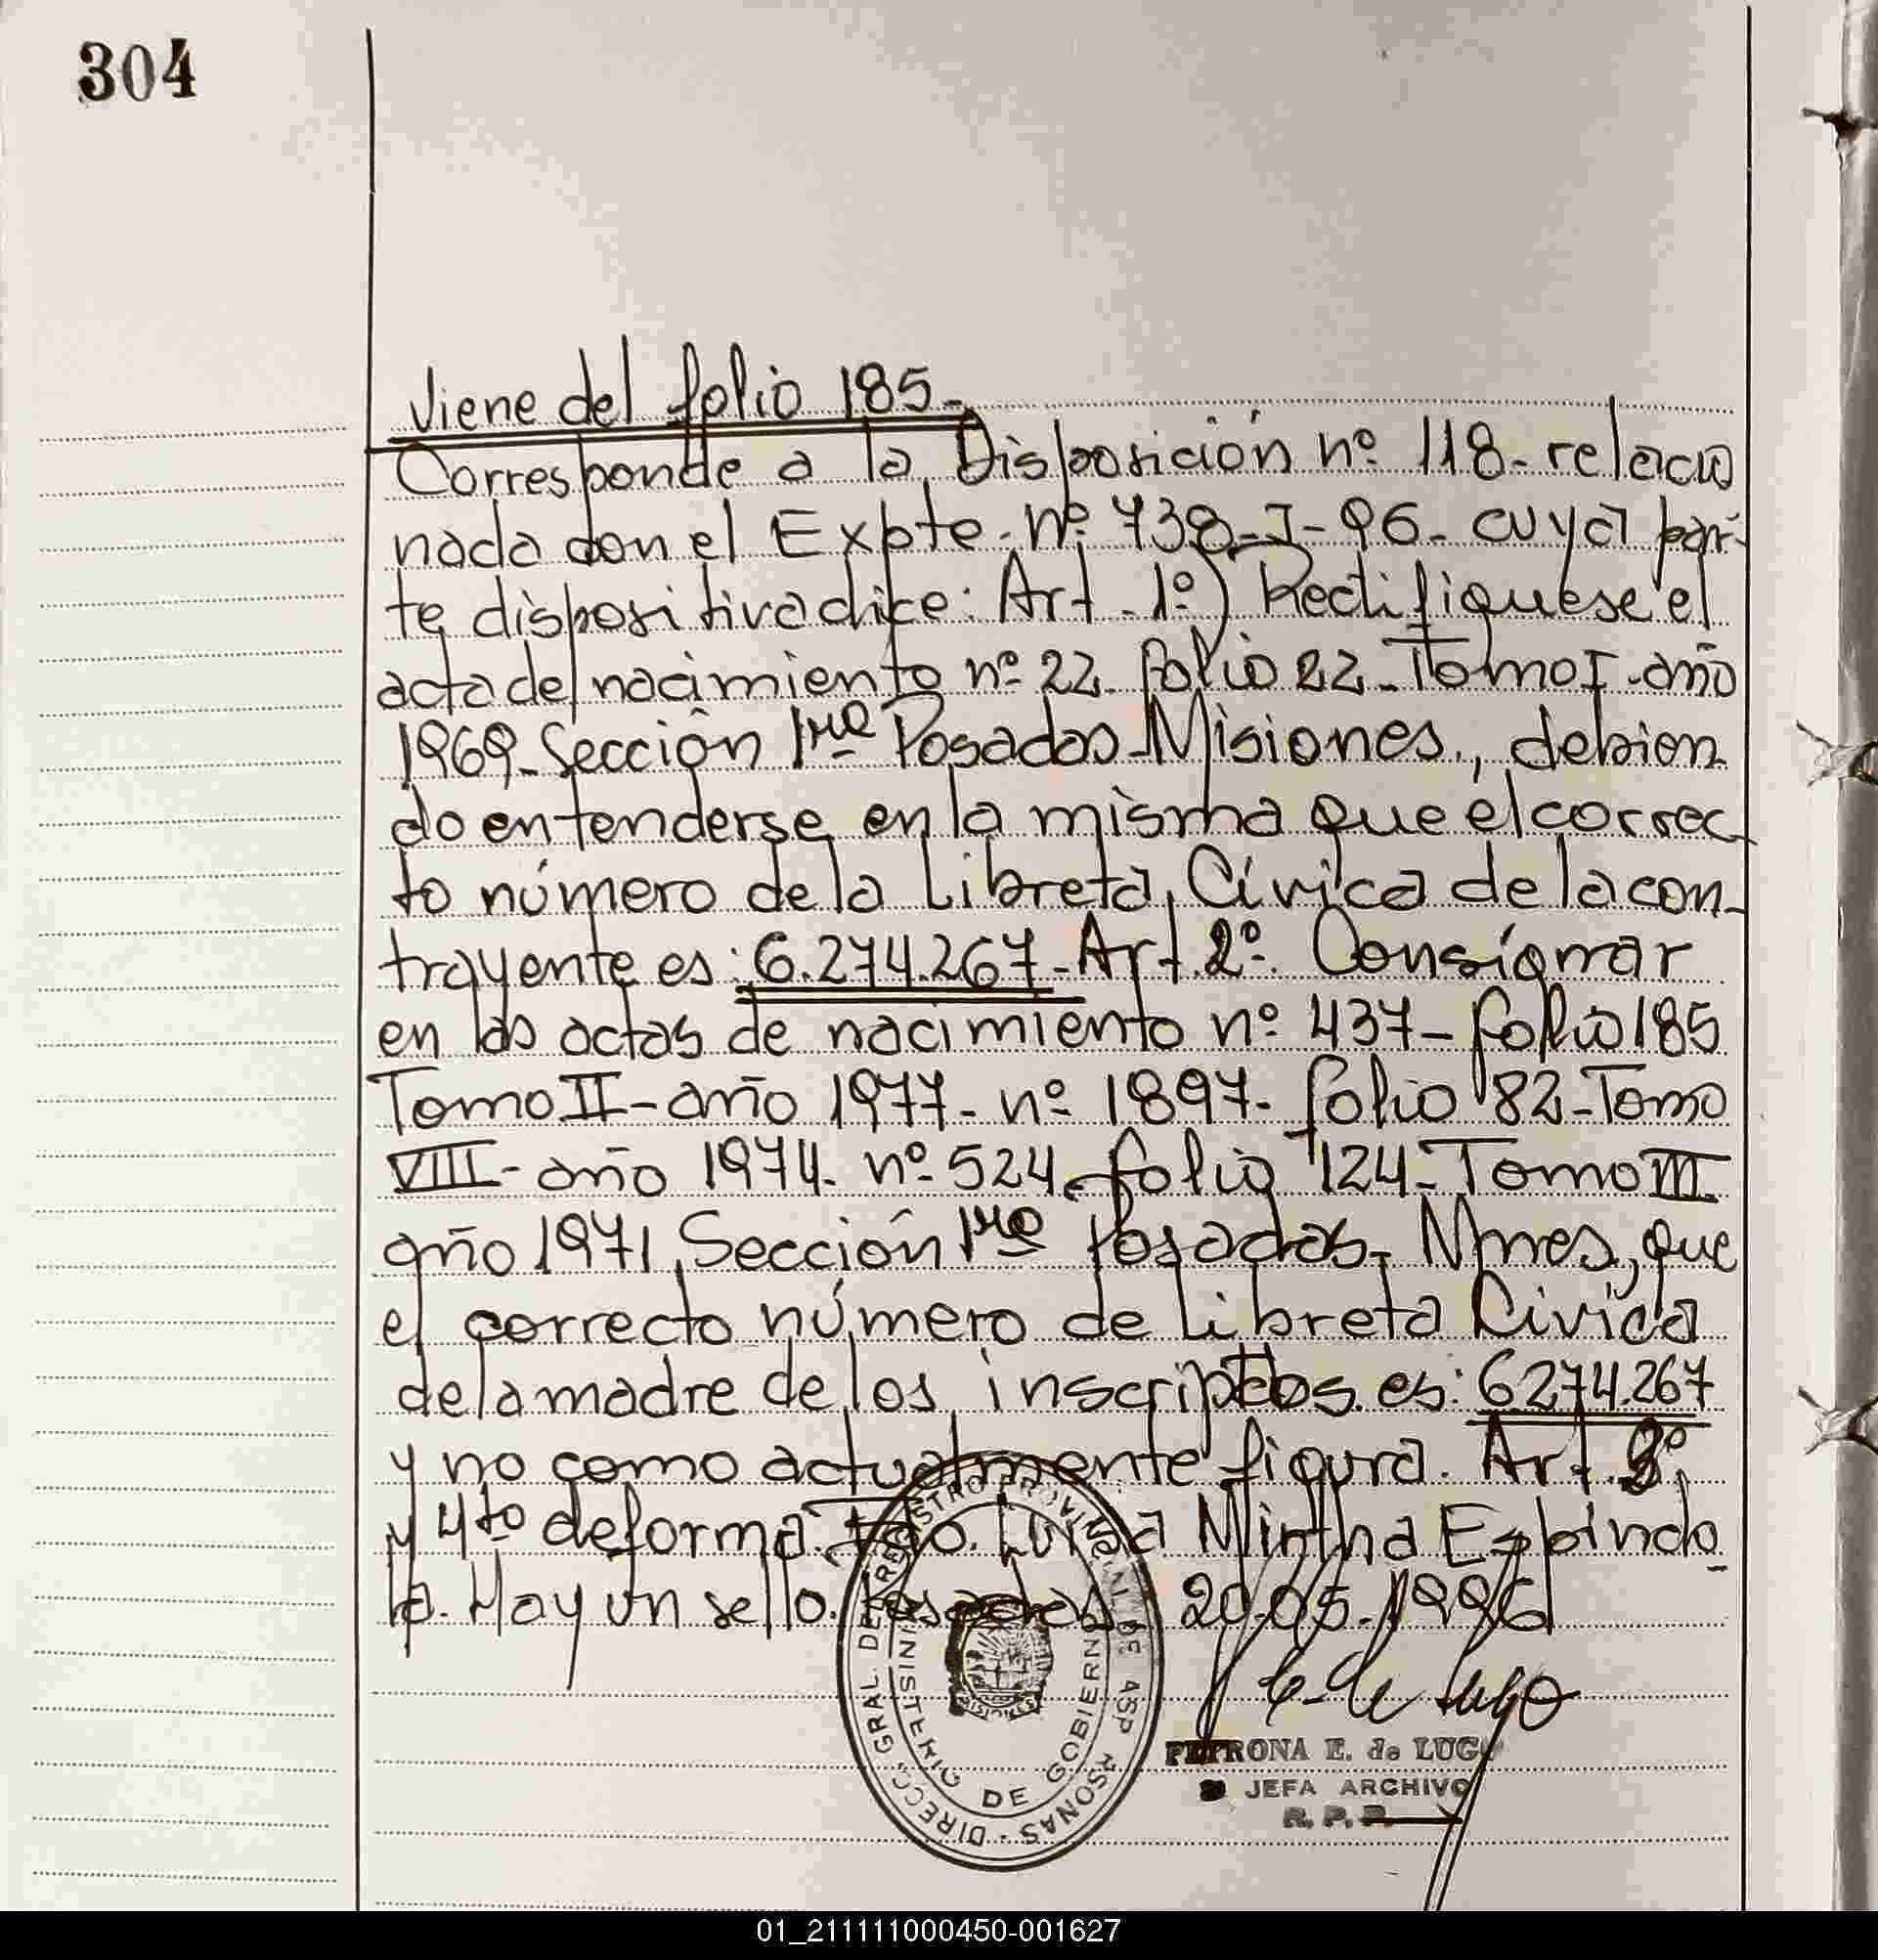 304
Viene del folio 185.-
Corresponde a la Disposición nº 118- relacio
nada con el Expte. nº 738-I-96- cuya par-
te dispositiva dice: Art. 1º) Rectifiquese el
acta de nacimiento nº 22- folio 22- Tomo I- año
1969- Sección 1ra Posadas- Misiones, debien
do entenderse en la misma que el correc-
to número de la Libreta Cívica de la con-
trayente es: 6.274.267- Art. 2º. Consignar
en las actas de nacimiento nº 437- folio 185
Tomo II- año 1977- nº 1897- folio 82- Tomo
VIII- año 1974- nº 524- folio 124- Tomo III
año 1971, Sección 1ra Posadas- Mnes, que
el correcto número de Libreta Civica
de la madre de los inscriptos es: 6274.267
y no como actualmente figura. Art. 3º
y 4to de forma. Fdo. Luisa Mirtha Espindo
la. Hay un sello. Posadas 20.05.1996
E. de Lugo
DIRECC. GRAL. DEL REGISTRO PROVINCIAL DE
PERSONAS
MINISTERIO DE GOBIERNO
PETRONA E. de LUGO
JEFA ARCHIVO
R. P. P.
01_211111000450-001627